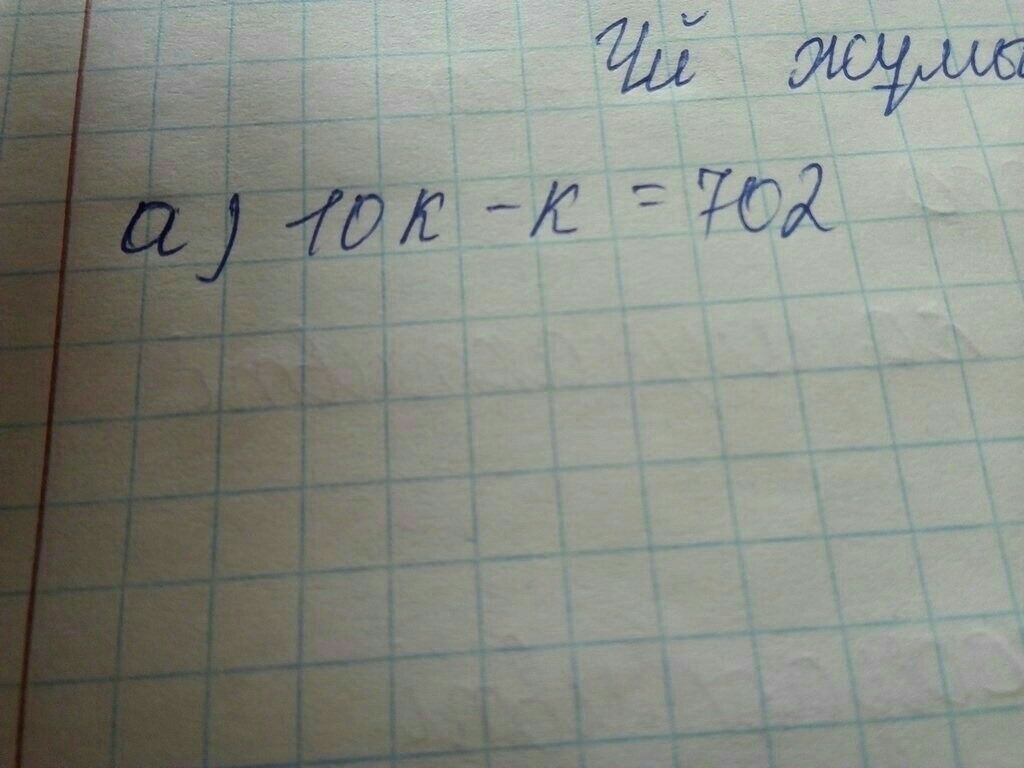 Үй жұмы
а) 10к - к = 702